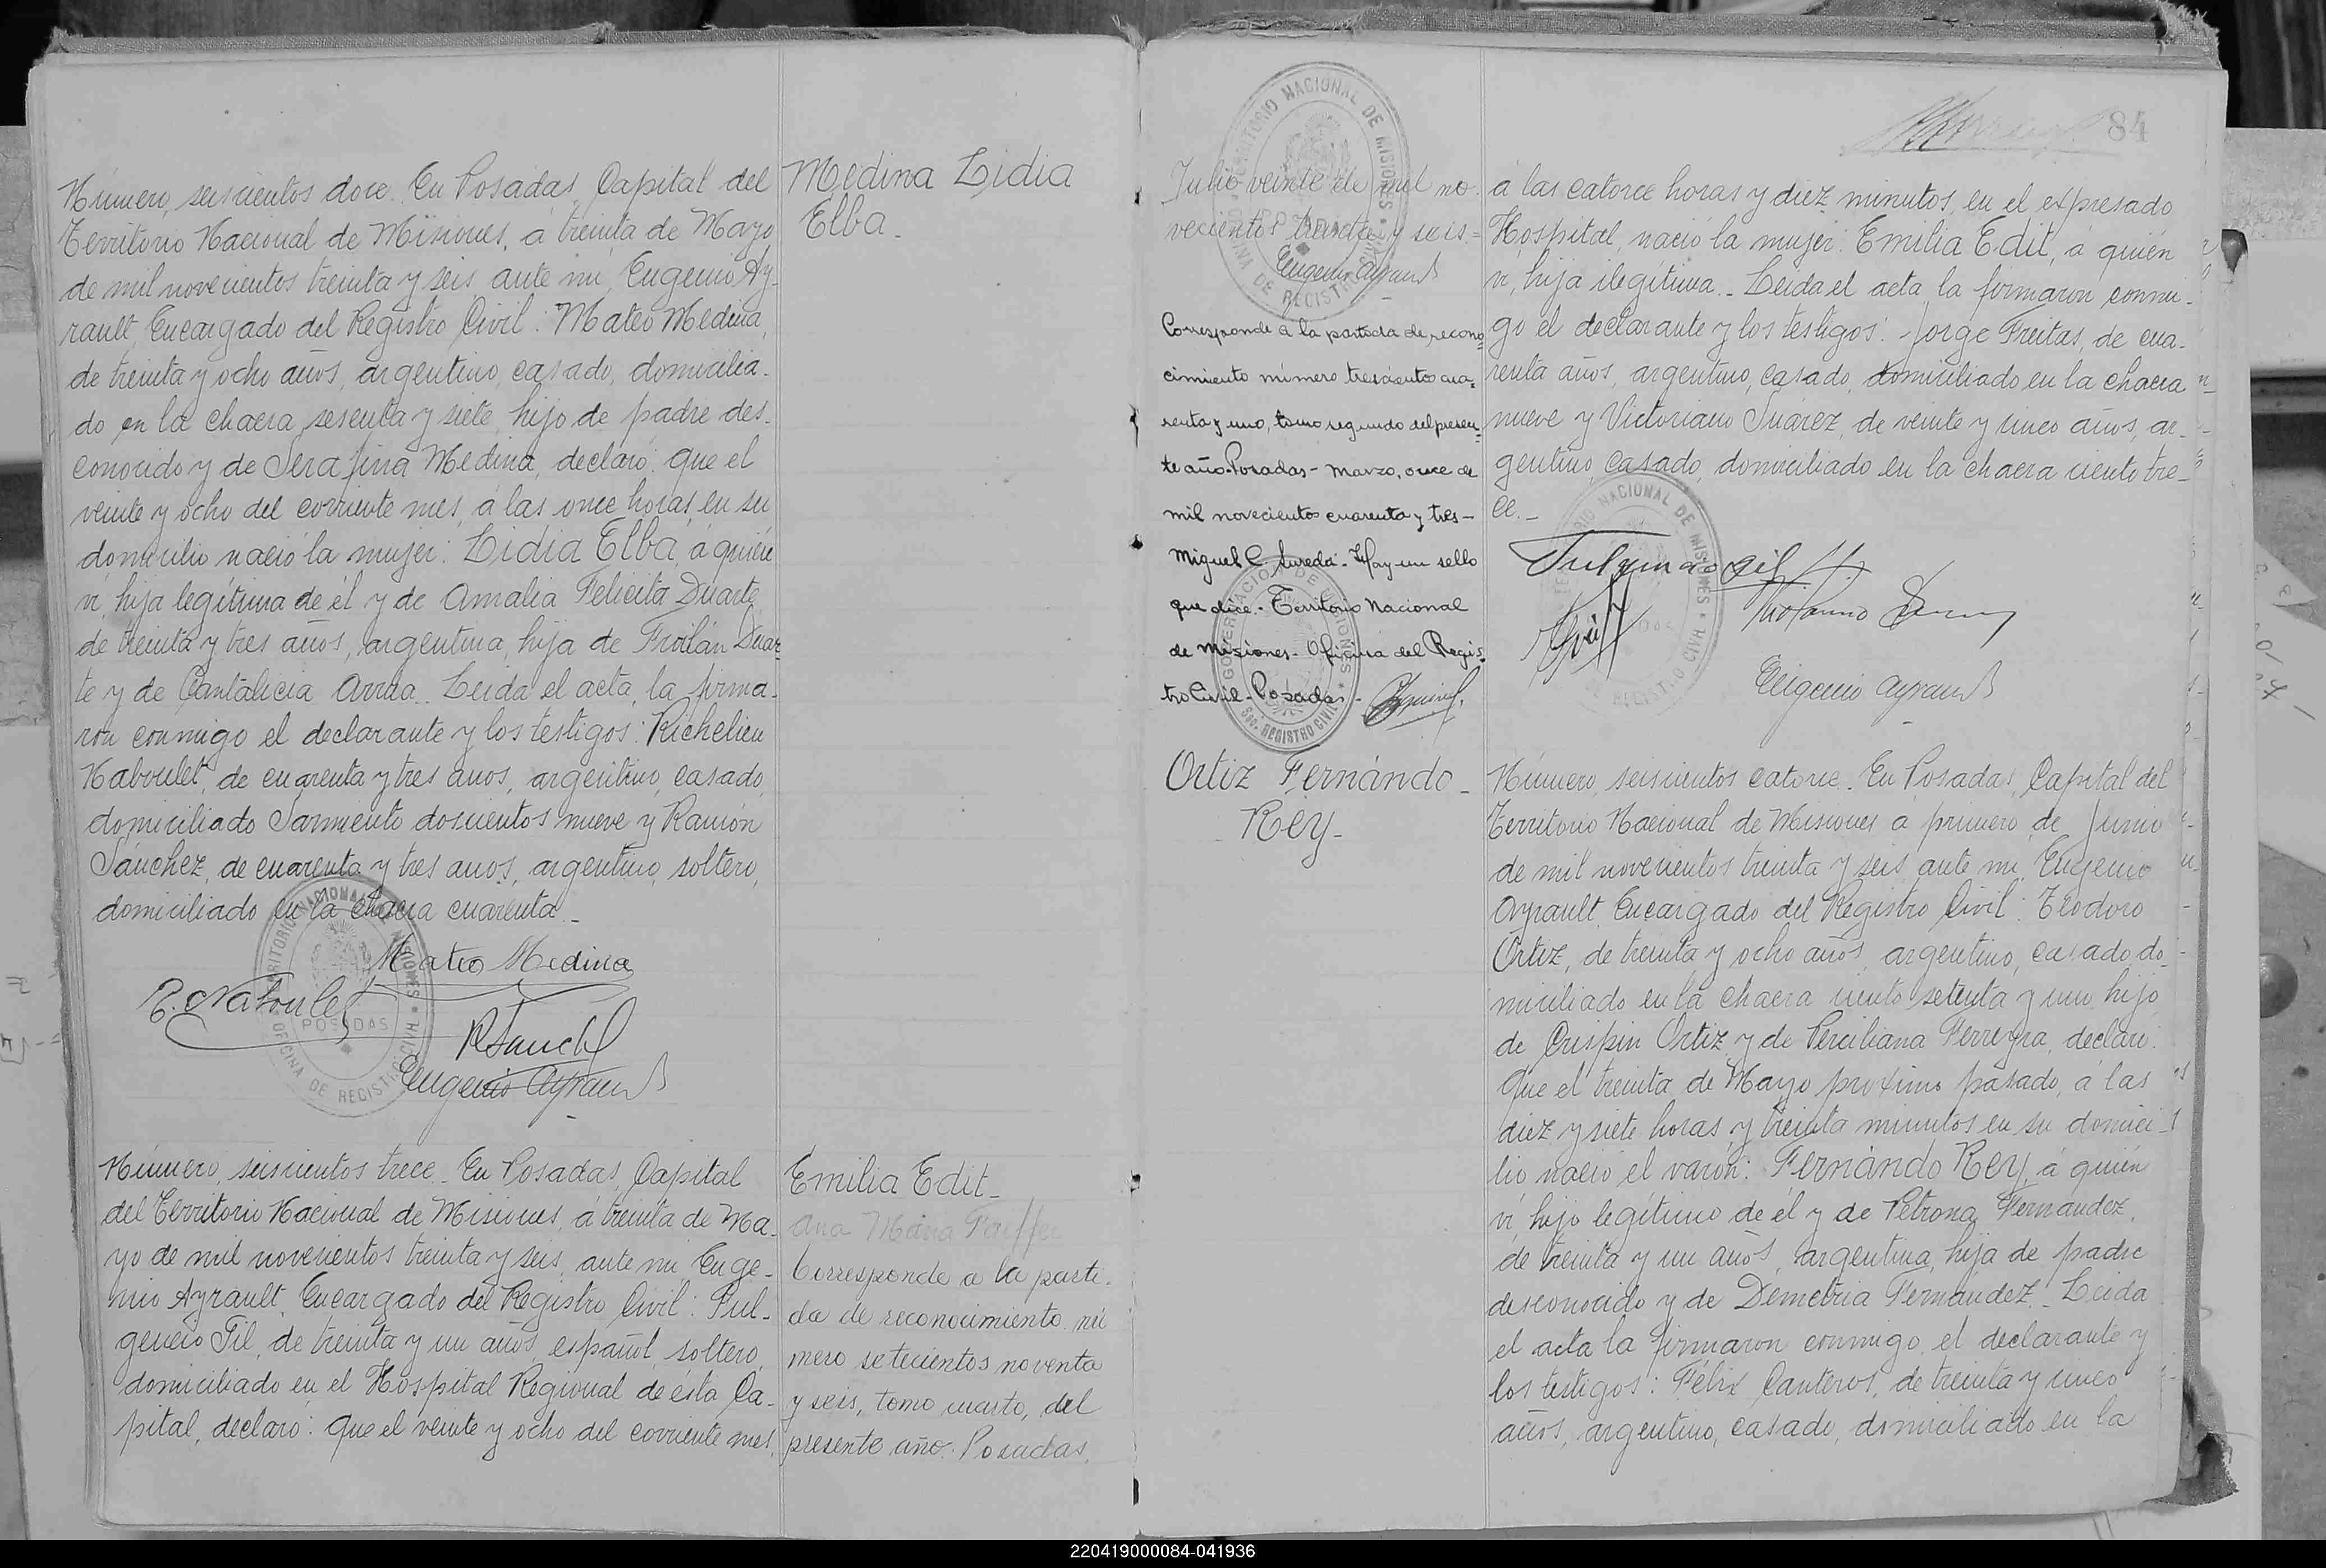 Número, seiscientos doce. En Posadas, Capital del
Territorio Nacional de Misiones, á treinta de Mayo
de mil novecientos treinta y seis ante mí, Eugenio Ay-
rault, Encargado del Registro Civil: Mateo Medina,
de treinta y ocho años, argentino, casado, domicilia-
do en la chacra sesenta y siete, hijo de padre des-
conocido y de Serafina Medina, declaró: que el
veinte y ocho del corriente mes, á las once horas, en su
domicilio nació la mujer: Lidia Elba, á quién
ví, hija legítima de él y de Amalia Felicita Duarte,
de treinta y tres años, argentina, hija de Froilán Duar-
te y de Cantalicia Arrúa. Leida el acta, la firma-
ron conmigo el declarante y los testigos: Richelieu
Naboulet, de cuarenta y tres años, argentino, casado,
domiciliado Sarmiento doscientos nueve y Ramón
Sánchez, de cuarenta y tres anos, argentino, soltero,
domiciliado en la chacra cuarenta.-
Mateo Medina
R. Naboulet
RSanchez
Eugenio Ayrault
TERRITORIO NACIONAL DE MISIONES
POSADAS
OFICINA DE REGISTRO CIVIL
Medina Lidia
Elba.-
Número, seiscientos trece. En Posadas, Capital
del Territorio Nacional de Misiones, á treinta de Ma-
yo de mil novecientos treinta y seis, ante mí, Euge-
nio Ayrault, Encargado del Registro Civil: Ful-
gencio Gil, de treinta y un años, español, soltero,
domiciliado en el Hospital Regional de ésta Ca-
pital, declaró: que el veinte y ocho del corriente mes,
Emilia Edit-
Ana Maria
Corresponde a la parti-
da de reconocimiento nú
mero setecientos noventa
y seis, tomo cuarto, del
presente año. Posadas,
Julio veinte de mil no-
vecientos treinta y seis=
Eugenio Ayrault
TERRITORIO NACIONAL DE MISIONES
Corresponde a la partida de recono-
cimiento número trescientos cua-
renta y uno, tomo segundo del presen-
te año. Posadas- Marzo, once de
mil novecientos cuarenta y tres-
Miguel C. Sureda- Hay un sello
que dice.- Territorio Nacional
de Misiones- Oficina del Regis-
tro Civil- Posadas-
GOBERNACION DE MISIONES
Sec. REGISTRO CIVIL
84
á las catorce horas y diez minutos, en el expresado
Hospital, nació la mujer: Emilia Edit, á quién
ví, hija ilegítima.- Leida el acta, la firmaron conmi-
go el declarante y los testigos: Jorge Freitas, de cua-
renta años, argentino, casado, domiciliado en la chacra
nueve y Victoriano Suárez, de veinte y cinco años, ar-
gentino, casado, domiciliado en la chacra ciento tre-
ce.-
Fulgencio Gil
Eugenio Ayrault
NACIONAL DE MISIONES
REGISTRO CIVIL
Ortiz Fernándo-
Rey-
Número, seiscientos catorce. En Posadas, Capital del
Territorio Nacional de Misiones á primero de Junio
de mil novecientos treinta y seis ante mí, Eugenio
Ayrault, Encargado del Registro Civil: Teodoro
Ortiz, de treinta y ocho años, argentino, casado, do-
miciliado en la chacra ciento setenta y uno, hijo
de Crispin Ortiz y de Perciliana Ferreyra, declaró:
que el treinta de Mayo próximo pasado, á las
diez y siete horas y treinta minutos en su domici-
lio nació el varón: Fernándo Rey, á quién
ví, hijo legítimo de él y de Petrona Fernández,
de treinta y un años, argentina, hija de padre
desconocido y de Demetria Fernández.- Leida
el acta la firmaron conmigo el declarante y
los testigos: Félix Canteros, de treinta y cinco
años, argentino, casado, domiciliado en la
220419000084-041936